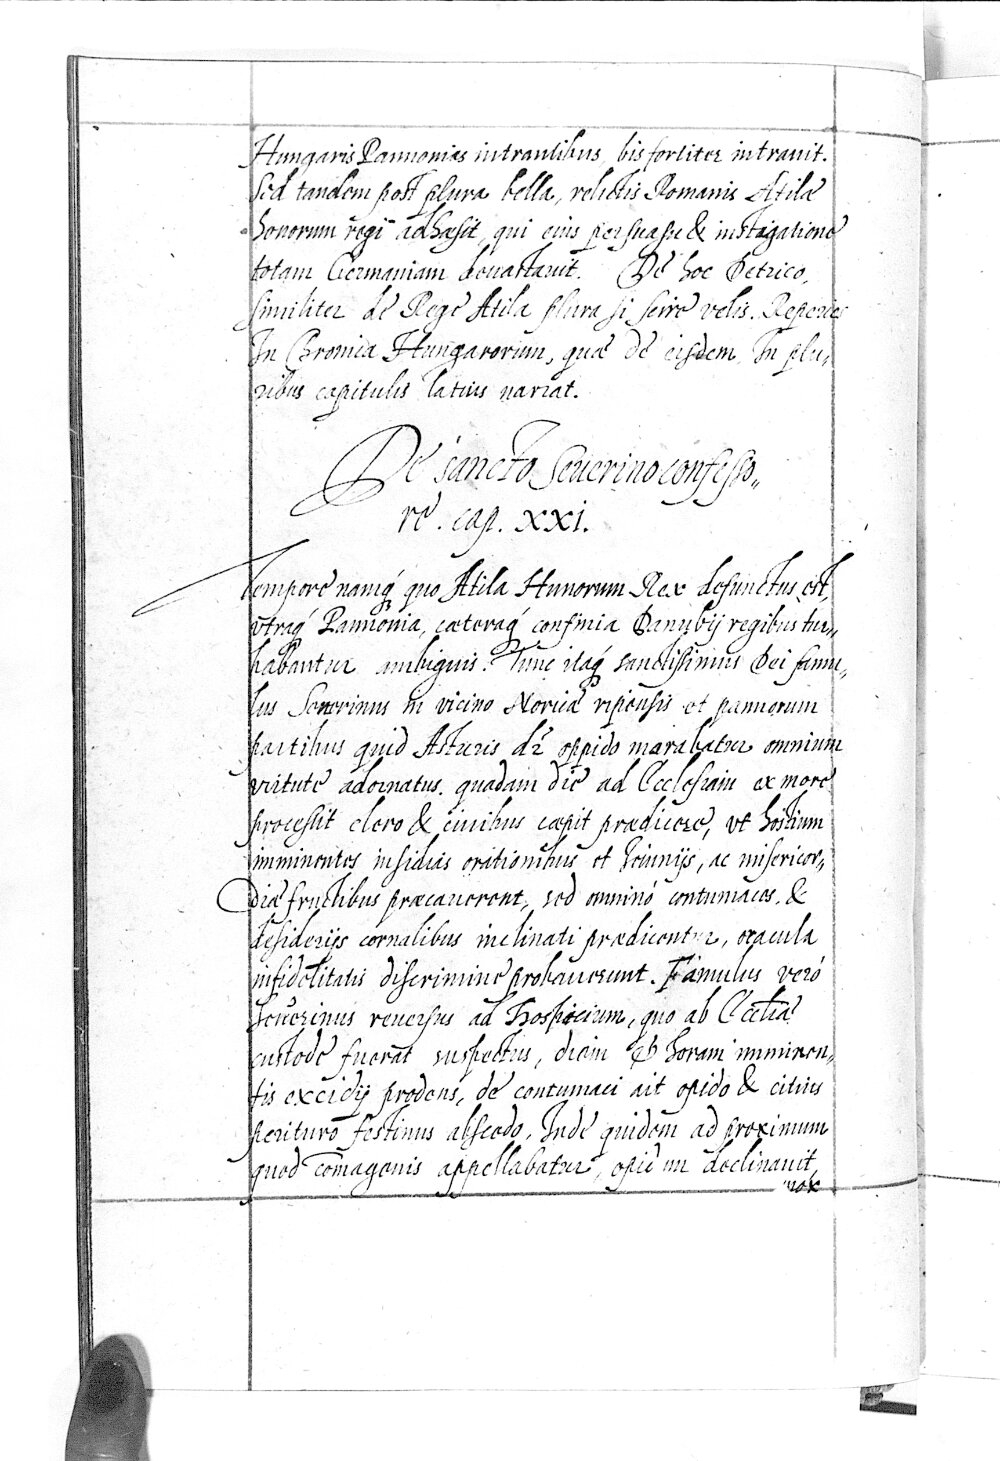 Hungaris Pannonias intrantibus, bis fortiter intrauit.
Sed tandem post plura bella, relictis Romanis Atilæ
honorum regi adhæsit, qui eius persuasu & instigatione
totam Germaniam deuastauit. De hoc Detrico,
similiter de Rege Atila plura si scire velis. Reperies
In Cronica Hungarorum, quæ de eisdem In plu„
ribus capitulis latius narrat.
De sancto Seuerino confesso„
re. cap. XXI.
Tempore namq́ quo Atila Hunorum Rex defunctus est,
vtraq́ Pannonia, cæteraq́ confinia Danubij regibus tur„
babantur ambiguis. Tunc itaq́ sanctissimus Dei famu„
lus Seuerinus in vicino Norica ripensis et pannorum
partibus quid Asturis dr̄ oppido morabatur omnium
virtute adornatus. quadam die ad Ecclesiam ex more
processit clero & ciuibus cœpit prædicere, vt hostium
imminentes insidias orationibus et Ieiunijs, ac misericor„
diæ fructibus præcauerent, sed omninò contumaces, &
desiderijs cornalibus inclinati prædicentur, oracula
infidelitatis discrimine probauerunt. Famulus verò
Seuerinus reuersus ad Hospicium, quo ab Ecclīæ
custode fuerat susceptus, diem & horam imminen„
tis excidij prodens, de contumaci ait opido & citius
perituro festinus abscedo. Inde quidem ad proximum
quod Comagenis appellabatur, opidum declinauit,
uox